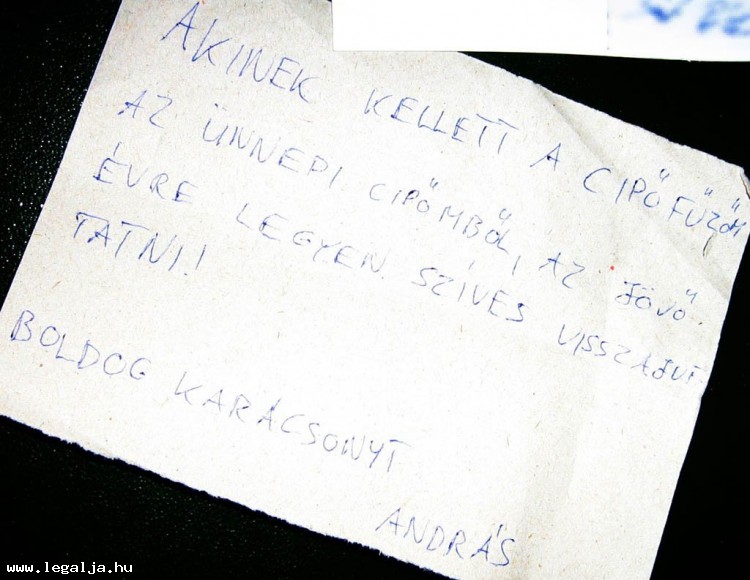 AKINEK KELLETT A CIPŐFŰZŐM
AZ ÜNNEPI CIPŐMBŐL, AZ JÖVŐ
ÉVRE LEGYEN SZÍVES VISSZAJUT
TATNI!
BOLDOG KARÁCSONYT
ANDRÁS
www.legalja.hu